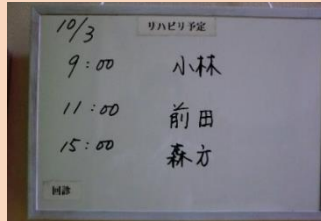 10/3 リハビリ予定
9:00 小林
11:00 前田
15:00 森方
回診